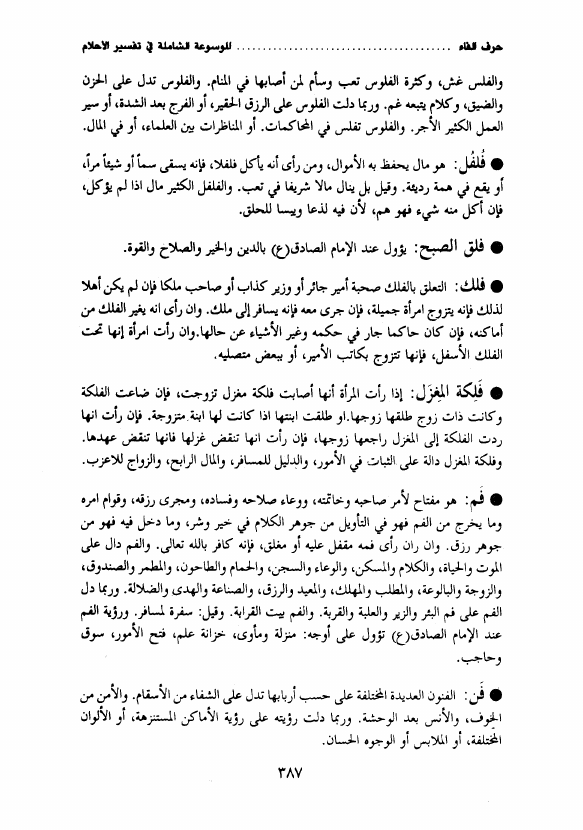 حرف الفاء ........................................ للموسوعة الشاملة في تفسير الأحلام
والفلس غش، وكثرة الفلوس تعب وسأم لمن أصابها في المنام. والفلوس تدل على الحزن
والضيق، وكلام يتبعه غم. وربما دلت الفلوس على الرزق الحقير، أو الفرج بعد الشدة، أو سير
العمل الكثير الأجر. والفلوس تفلس في المحاكمات. أو المناظرات بين العلماء، أو في المال.
● فُلفُل: هو مال يحفظ به الأموال، ومن رأى أنه يأكل فلفلا، فإنه يسقى سماً أو شيئاً مراً،
أو يقع في همة رديئة. وقيل بل ينال مالا شريفا في تعب. والفلفل الكثير مال اذا لم يؤكل،
فإن أكل منه شيء فهو هم، لأن فيه لذعا ويبسا للحلق.
● فلق الصبح: يؤول عند الإمام الصادق(ع) بالدين والخير والصلاح والقوة.
● فلك: التعلق بالفلك صحبة أمير جائر أو وزير كذاب أو صاحب ملكا فإن لم يكن أهلا
لذلك فإنه يتزوج امرأة جميلة، فإن جرى معه فإنه يسافر إلى ملك. وان رأى انه يغير الفلك من
أماكنه، فإن كان حاكما جار في حكمه وغير الأشياء عن حالها.وان رأت امرأة إنها تحت
الفلك الأسفل، فإنها تتزوج بكاتب الأمير، أو ببعض متصليه.
● فَلِكة المِغزَل: إذا رأت المرأة أنها أصابت فلكة مغزل تزوجت، فإن ضاعت الفلكة
وكانت ذات زوج طلقها زوجها.او طلقت ابنتها اذا كانت لها ابنة متزوجة. فإن رأت انها
ردت الفلكة إلى المغزل راجعها زوجها، فإن رأت انها تنقض غزلها فانها تنقض عهدها.
وفلكة المغزل دالة على الثبات في الأمور، والدليل للمسافر، والمال الرابح، والزواج للاعزب.
● فَم: هو مفتاح لأمر صاحبه وخاتمته، ووعاء صلاحه وفساده، ومجرى رزقه، وقوام امره
وما يخرج من الفم فهو في التأويل من جوهر الكلام في خير وشر، وما دخل فيه فهو من
جوهر رزق. وان ران رأى فمه مقفل عليه أو مغلق، فإنه كافر بالله تعالى. والفم دال على
الموت والحياة، والكلام والمسكن، والوعاء والسجن، والحمام والطاحون، والمطمر والصندوق،
والزوجة والبالوعة، والمطلب والمهلك، والمعيد والرزق، والصناعة والهدى والضلالة. وربما دل
الفم على فم البئر والزير والعلبة والقربة. والفم بيت القرابة. وقيل: سفرة لمسافر. ورؤية الفم
عند الإمام الصادق(ع) تؤول على أوجه: منزلة ومأوى، خزانة علم، فتح الأمور، سوق
وحاجب.
● فَن: الفنون العديدة المختلفة على حسب أربابها تدل على الشفاء من الأسقام. والأمن من
الخوف، والأنس بعد الوحشة. وربما دلت رؤيته على رؤية الأماكن المستنزهة، أو الألوان
المختلفة، أو الملابس أو الوجوه الحسان.
٣٨٧